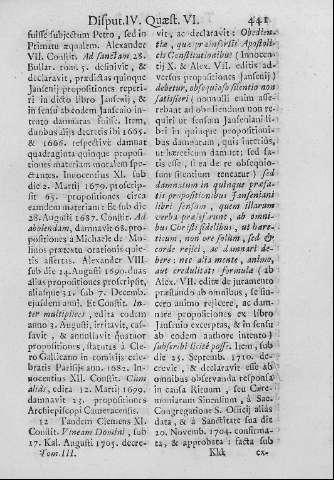 Disput. IV. Quæst. VI. 441
fuisse subjectum Petro, sed in
Primatu æqualem. Alexander
VII. Constit. Ad Sanctam 28.
Bullar. tom. 5. definivit, &
declaravit, prædictas quinque
Jansenij propositiones reperi-
ri in dicto libro Jansenij, &
in sensu ab eodem Jansenio in-
tento damnatas fuisse. Item,
duobus alijs decretis ibi 1665.
& 1666. respectivè damnat
quadraginta quinque proposi-
tiones materiam moralem spe-
ctantes. Innocentius XI. sub
die 2. Martij 1679. proscrip-
sit 65. propositiones circa
eamdem materiam: & sub die
28. Augusti 1687. Constit. Ad
abolendam, damnavit 68. pro-
positiones à Michaele de Mo-
linos prætextu orationis quie-
tis assertas. Alexander VIII.
sub die 24. Augusti 1690. duas
alias propositiones proscripsit,
aliasque 31. sub 7. Decemb.
ejusdem anni. Et Constit. In-
ter multiplices, edita eodem
anno 3. Augusti, irritavit, cas-
savit, & annullavit quatuor
propositiones, statutas à Cle-
ro Gallicano in comitijs cele-
bratis Parisijs ann. 1682. In-
nocentius XII. Constit. Cùm
aliàs, edita 12. Martij 1699.
damnavit 23. propositiones
Archiepiscopi Cameracensis.
12 Tandem Clemens XI.
Constit. Vineam Domini, sub
17. Kal. Augusti 1705. decre-
Tom. III.
vit, ac declaravit: Obedien-
tiæ, quæ præinsertis Apostoli-
cis Constitutionibus (Innocen-
tij X. & Alex. VII. editis ad-
versus propositiones Jansenij)
debetur, obsequioso silentio non
satisfieri; nonnulli enim asse-
rebant ad obediendum non re-
quiri ut sensum Janseniani li-
bri in quinque propositioni-
bus damnatum, quis interiùs,
ut hæreticum damnet; sed sa-
tis esse, si ea de re obsequio-
sum silentium teneatur) sed
damnatum in quinque præfa-
tis propositionibus Janseniani
libri sensum, quem illarum
verba præseferunt, ab omni-
bus Christi fidelibus, ut hære-
ticum, non ore solùm, sed &
corde rejici, ac damnari de-
bere: nec alia mente, animo,
aut credulitate formula (ab
Alex. VII. edita de juramento
præstando ab omnibus, se sin-
cero animo rejicere, ac dam-
nare propositiones ex libro
Jansenio excerptas, & in sensu
ab eodem authore intento)
subscribi licitè posse. Item, sub
die 25. Septemb. 1710. decre-
vit, & declaravit esse ab
omnibus observanda responsa
in causa Rituum, seu Cære-
moniarum Sinensium, à Sac.
Congregatione S. Officij alias
data, & à Sanctitate sua die
20. Novemb. 1704. confirma-
ta, & approbata: facta sub
Kkk ex-